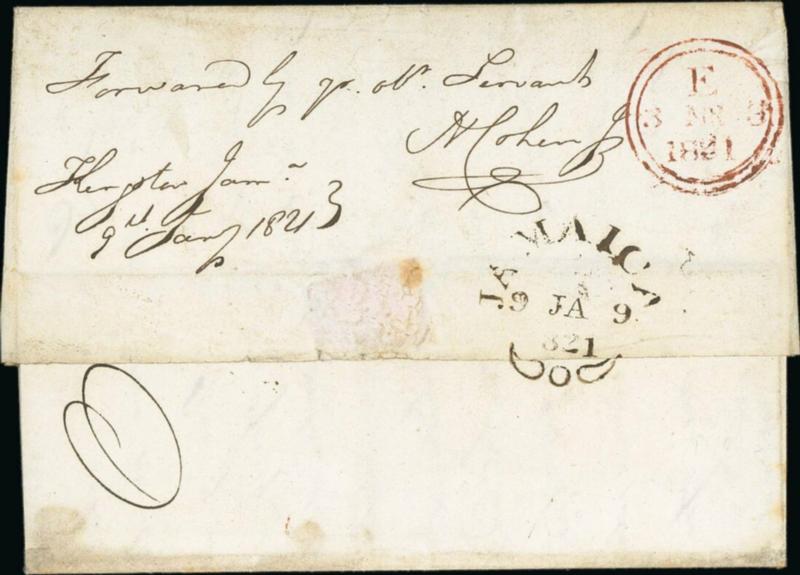 Forwarded by yr. obt. Servant
A Cohen
Kingston Jama.
9th Jany 1821
E
3 MR 3
1821
JAMAICA
9 JA 9
821